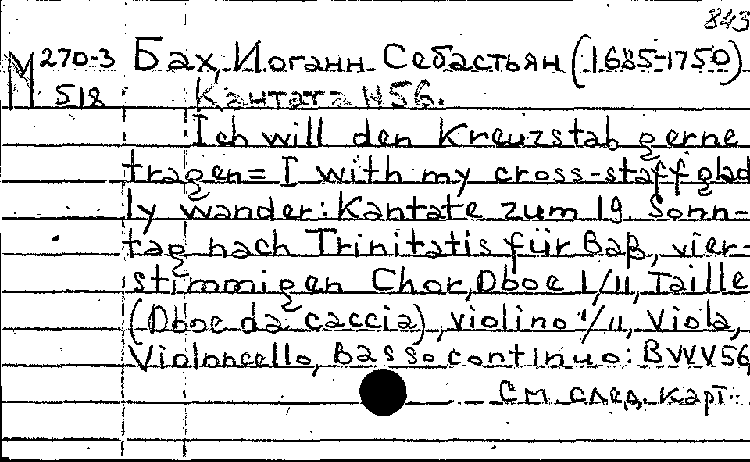 843
М 270-3 Бах, Иоганн Себастьян (1685-1750)
518 Кантата N 56.
Ich will den Kreuzstab gerne
tragen = I with my cross-staff glad
ly wander: Kantate zum 19. Sonn-
tag nach Trinitatis für Baß, vier-
stimmigen Chor, Oboe I/II, Taille
(Oboe da caccia), violino I/II, Viola,
Violoncello, Basso continuo: BWV 56
См. след. карт.